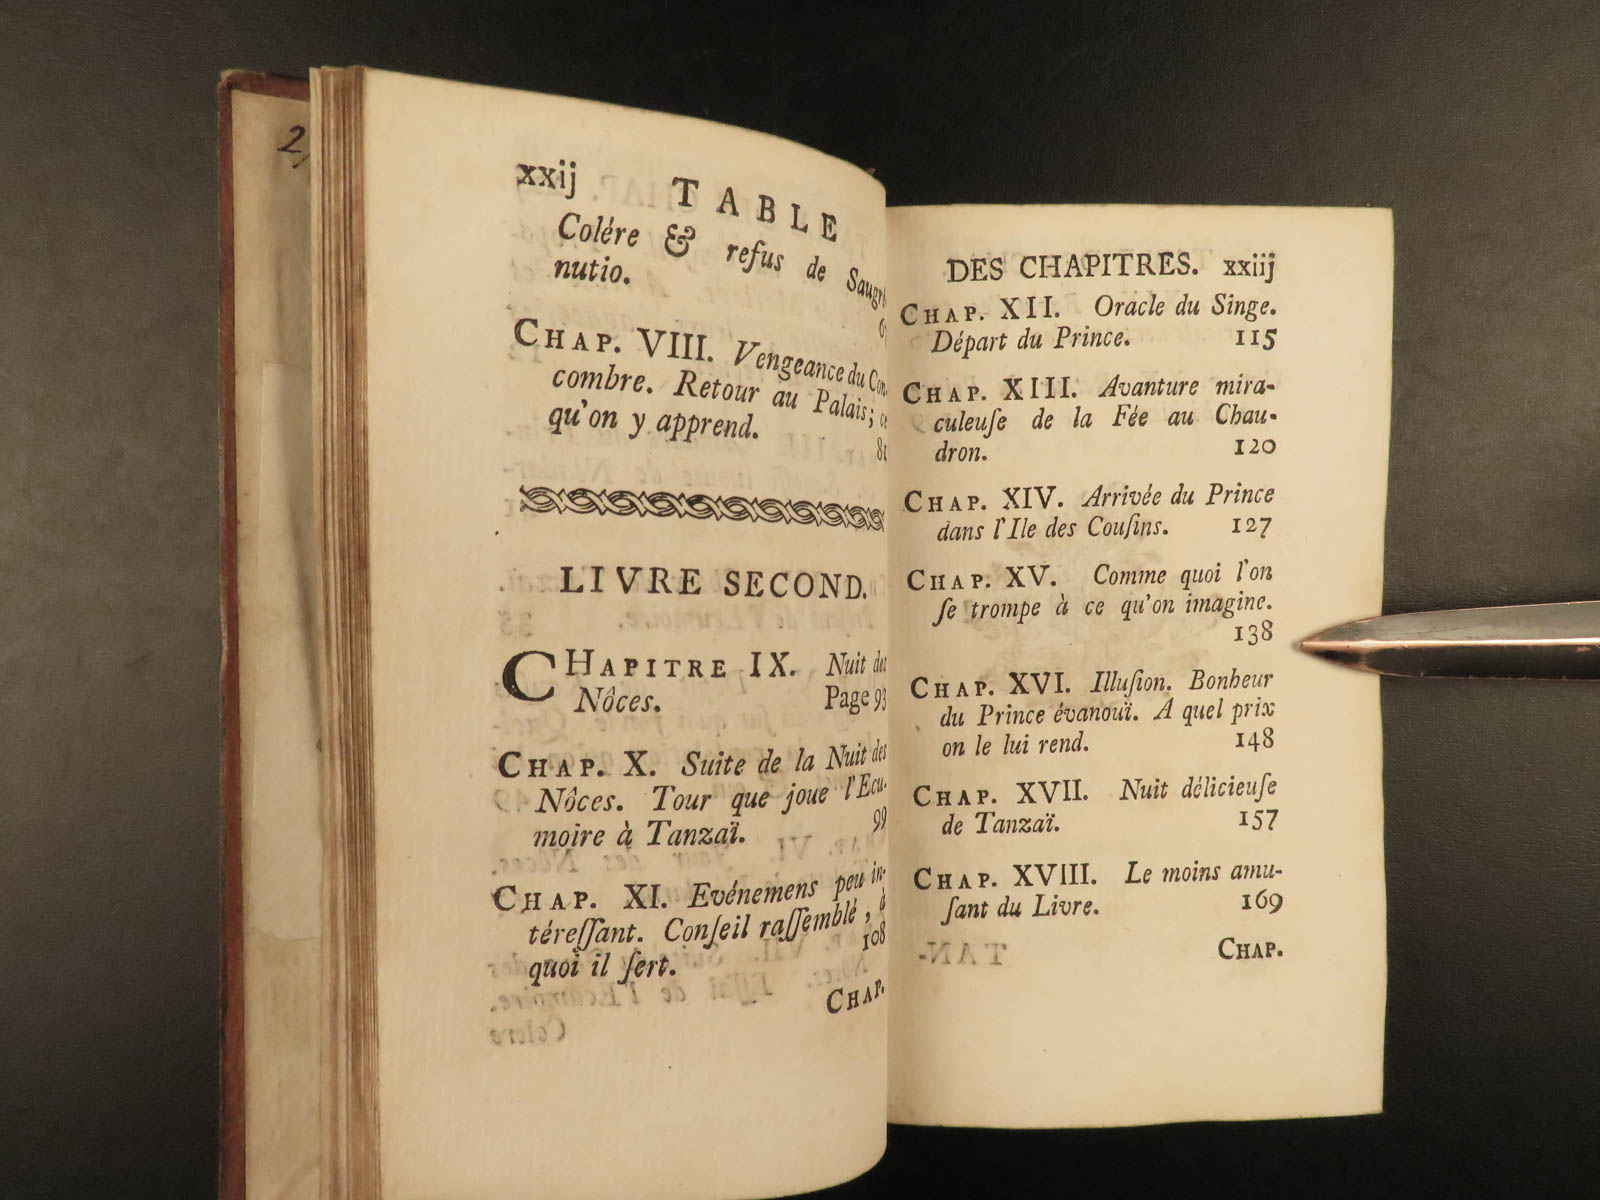 2
xxij TABLE
Colére & refus de Saugré
nutio.
CHAP. VIII. Vengeance du Con
combre. Retour au Palais; ce
qu'on y apprend. 81
LIVRE SECOND.
CHAPITRE IX. Nuit des
Nôces. Page 93
CHAP. X. Suite de la Nuit des
Nôces. Tour que joue l'Ecu-
moire à Tanzaï. 99
CHAP. XI. Evénemens peu in-
téreſſant. Conſeil raſſemblé, à
quoi il ſert. 108
CHAP.
DES CHAPITRES. xxiij
CHAP. XII. Oracle du Singe.
Départ du Prince. 115
CHAP. XIII. Avanture mira-
culeuſe de la Fée au Chau-
dron. 120
CHAP. XIV. Arrivée du Prince
dans l'Ile des Couſins. 127
CHAP. XV. Comme quoi l'on
ſe trompe à ce qu'on imagine.
138
CHAP. XVI. Illuſion. Bonheur
du Prince évanouï. A quel prix
on le lui rend. 148
CHAP. XVII. Nuit délicieuſe
de Tanzaï. 157
CHAP. XVIII. Le moins amu-
ſant du Livre. 169
CHAP.